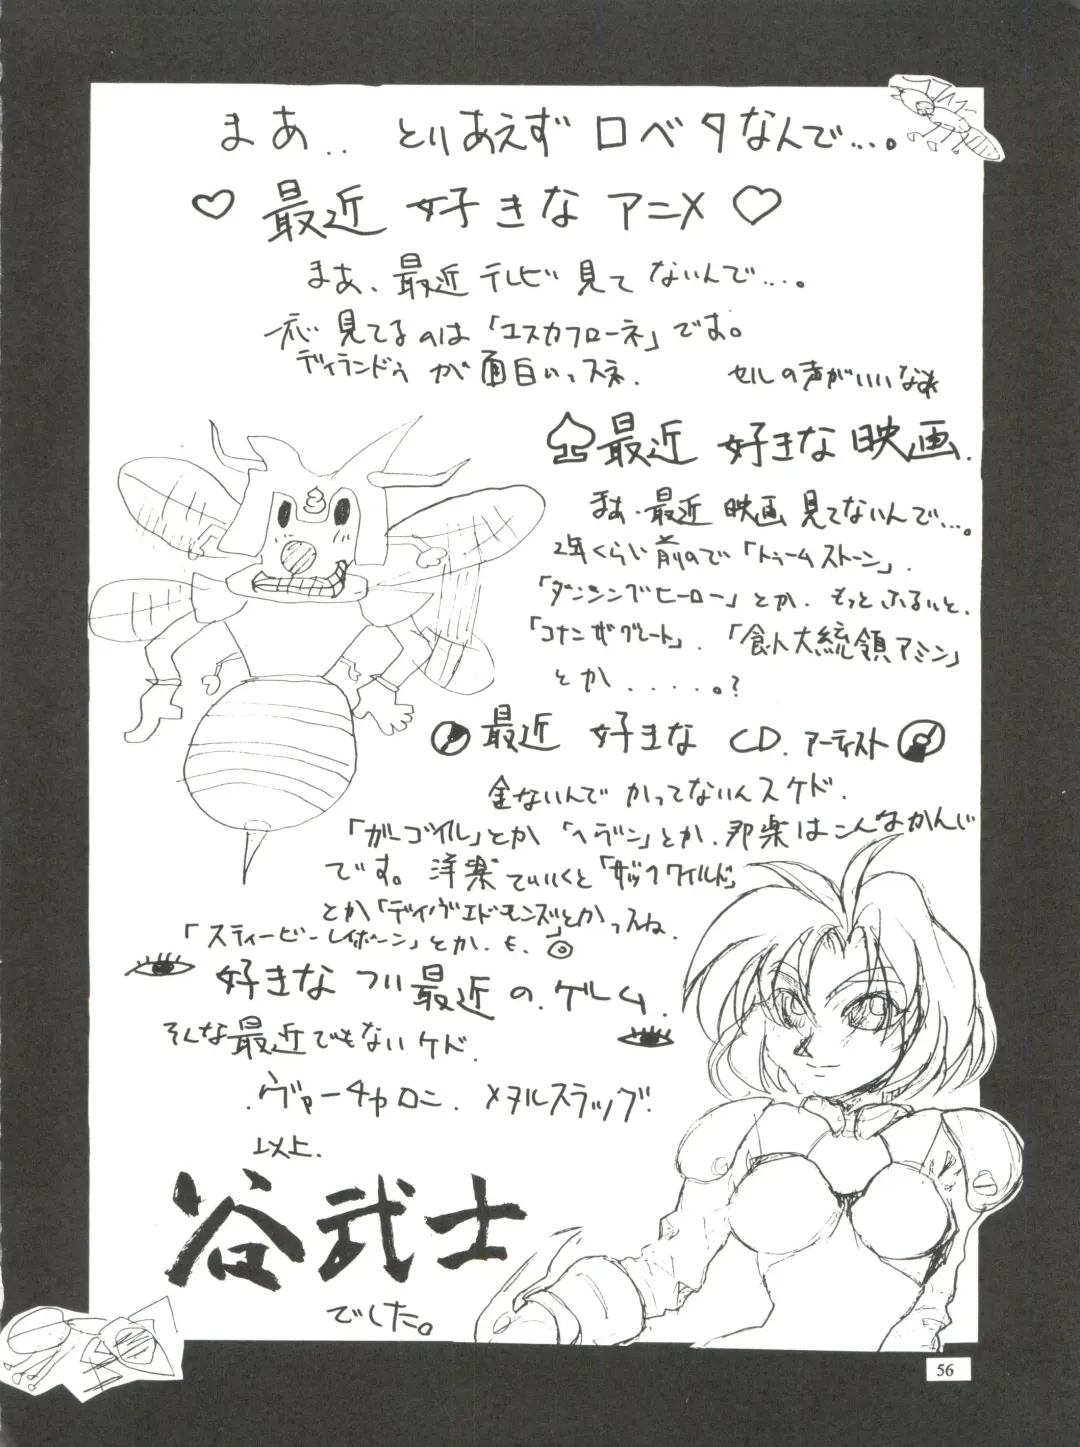 まあ.. とりあえずロベタなんで…。
♡最近 好きな アニメ♡
まあ、最近テレビ見てないんで…。
一応 見てるのは「エスカフローネ」です。
ディランドゥが面白いっスネ.
セルの声がいいなぁ
♤最近 好きな 映画.
まあ、最近 映画 見てないんで…。
2年くらい前ので「トゥームストーン」.
「ダンシングヒーロー」とか. もっとふるいと.
「コナン ザ グレート」. 「食人大統領アミン」
とか . . . . . 。?
最近 好きな CD. アーティスト
金ないんで かってないんスケド.
「ガーゴイル」とか 「ヘヴン」とか. 邦楽はこんなかんじ
です。洋楽でいくと「ザック ワイルド」
とか「デイヴ エドモンズ」とかっスね.
「スティービー レイボーン」とか. も.
好きな つい最近 の. ゲーム.
そんな最近でもないケド.
.ヴァーチャロン. メタルスラッグ.
以上.
谷武士
でした。
56